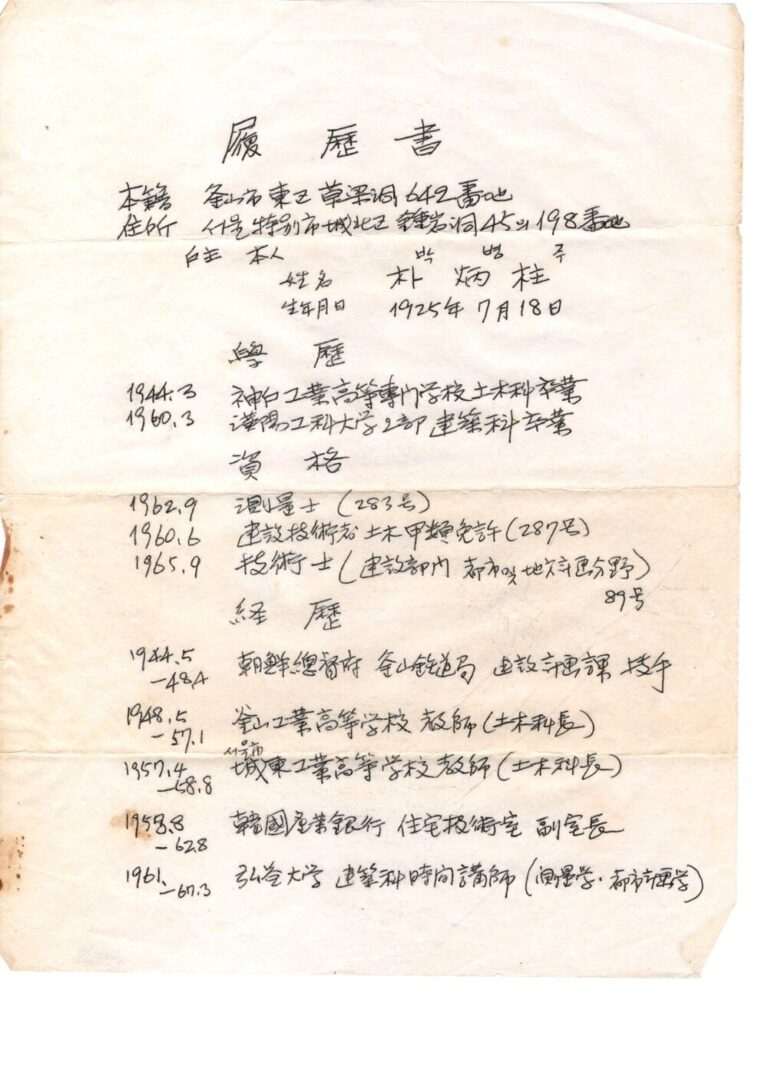 履歴書
本籍 釜山市東区草梁洞642番地
住所 서울特別市城北区鍾岩洞45의198番地
戸主 本人 박병주
姓名 朴炳柱
生年月日 1925年7月18日
學歴
1944.3 神戸工業高等専門学校土木科卒業
1960.3 漢陽工科大学2部建築科卒業
資格
1962.9 測量士(283号)
1960.6 建設技術者土木甲類免許(287号)
1965.9 技術士(建設部門 都市및地方計画分野)
89号
経歴
1944.5 朝鮮總督府 釜山鉄道局 建設計画課 技手
-48.4
1948.5 釜山工業高等学校 教師(土木科長)
-57.1
서울市
1957.4 城東工業高等学校教師(土木科長)
-58.8
1958.8 韓國産業銀行 住宅技術室 副室長
-62.8
1961. 弘益大学 建築科時間講師(測量学・都市計画学)
-67.3